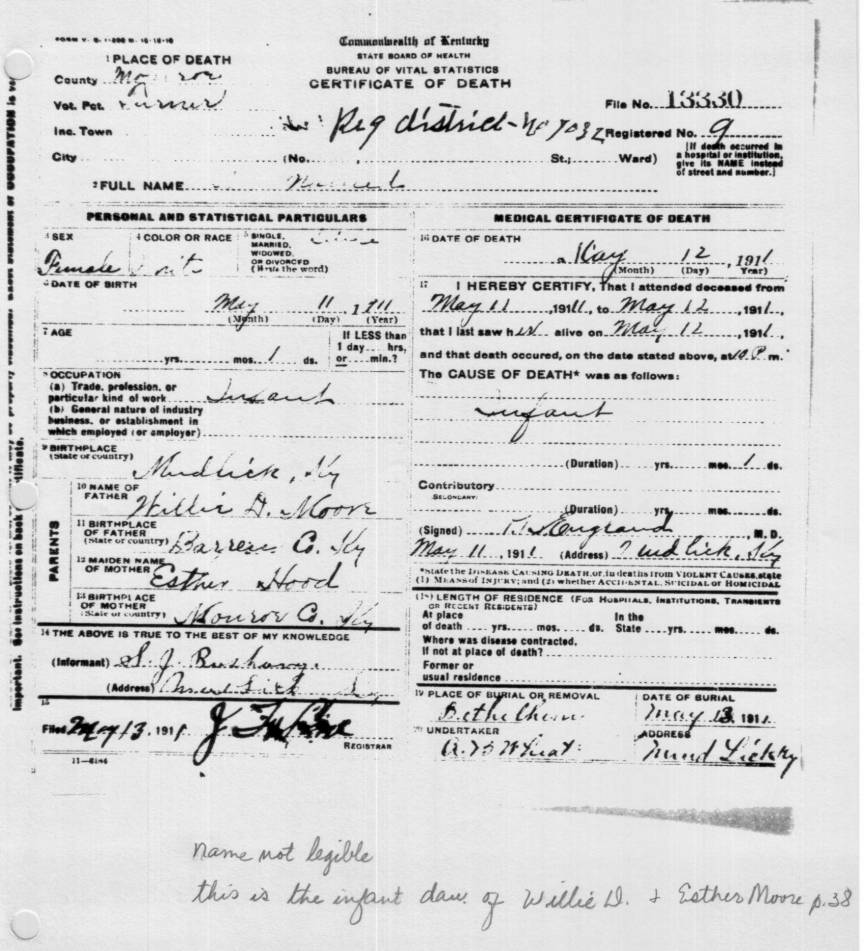 Commonwealth of Kentucky
STATE BOARD OF HEALTH
BUREAU OF VITAL STATISTICS
CERTIFICATE OF DEATH
1 PLACE OF DEATH
County Monroe
Vot. Pct. Turner
Inc. Town
Reg district - No 7032
City (No. St.; Ward)
File No. 13330
Registered No. 9
[If death occurred in a hospital or institution, give its NAME instead of street and number.]
2 FULL NAME
PERSONAL AND STATISTICAL PARTICULARS
3 SEX
Female
4 COLOR OR RACE
5 SINGLE, MARRIED, WIDOWED, OR DIVORCED (Write the word)
6 DATE OF BIRTH
May 11, 1911
(Month) (Day) (Year)
7 AGE
yrs. mos. 1 ds.
If LESS than 1 day hrs, or min.?
8 OCCUPATION
(a) Trade, profession, or particular kind of work Infant
(b) General nature of industry business, or establishment in which employed (or employer)
9 BIRTHPLACE
(State or country)
Mudlick, Ky
PARENTS
10 NAME OF FATHER
Willie D. Moore
11 BIRTHPLACE OF FATHER (State or country)
Barren Co. Ky
12 MAIDEN NAME OF MOTHER
Esther Hood
13 BIRTHPLACE OF MOTHER (State or country)
Monroe Co. Ky
14 THE ABOVE IS TRUE TO THE BEST OF MY KNOWLEDGE
(Informant) S. J.
(Address) Mud Lick Ky
15
Filed May 13, 1911
REGISTRAR
11-6184
MEDICAL CERTIFICATE OF DEATH
16 DATE OF DEATH
May 12, 1911
(Month) (Day) (Year)
17 I HEREBY CERTIFY, That I attended deceased from
May 11, 1911, to May 12, 1911,
that I last saw her alive on May 12, 1911,
and that death occured, on the date stated above, at 10 P m.
The CAUSE OF DEATH* was as follows:
Infant
(Duration) yrs. mos. 1 ds.
Contributory
SECONDARY
(Duration) yrs. mos. ds.
(Signed) England M.D.
May 11, 1911 (Address) Mudlick, Ky
*State the DISEASE CAUSING DEATH, or, in deaths from VIOLENT CAUSES, state
(1) MEANS OF INJURY; and (2) whether ACCIDENTAL, SUICIDAL OR HOMICIDAL
18 LENGTH OF RESIDENCE (FOR HOSPITALS, INSTITUTIONS, TRANSIENTS OR RECENT RESIDENTS)
At place of death yrs. mos. ds. In the State yrs. mos. ds.
Where was disease contracted, If not at place of death?
Former or usual residence
19 PLACE OF BURIAL OR REMOVAL
Bethelhem
DATE OF BURIAL
May 13, 1911
20 UNDERTAKER
ADDRESS
Mud Lick Ky
Important. See instructions on back
name not legible
this is the infant dau. of Willie D. + Esther Moore p.38